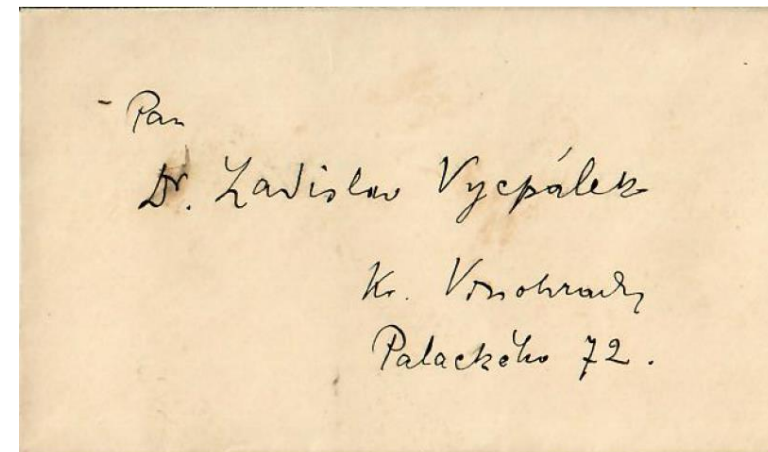 Pan
Dr. Ladislav Vycpálek
Kr. Vinohrady
Palackého 72.